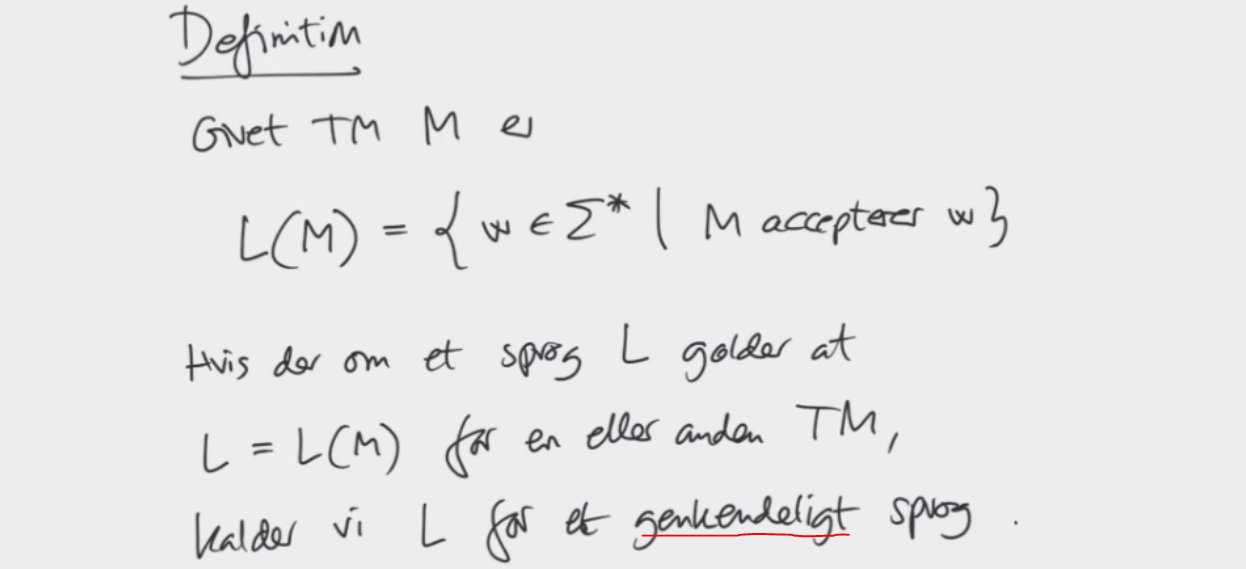 Definition
Givet TM M er
L(M) = { w ∈ Σ* | M accepterer w }
Hvis der om et sprog L gælder at
L = L(M) for en eller anden TM,
kalder vi L for et genkendeligt sprog.